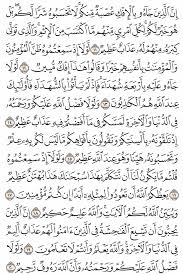 إِنَّ ٱلَّذِينَ جَآءُو بِٱلۡإِفۡكِ عُصۡبَةٞ مِّنكُمۡۚ لَا تَحۡسَبُوهُ شَرّٗا لَّكُمۖ بَلۡ
هُوَ خَيۡرٞ لَّكُمۡۚ لِكُلِّ ٱمۡرِيٕٖ مِّنۡهُم مَّا ٱكۡتَسَبَ مِنَ ٱلۡإِثۡمِۚ وَٱلَّذِي تَوَلَّىٰ
كِبۡرَهُۥ مِنۡهُمۡ لَهُۥ عَذَابٌ عَظِيمٞ ١١ لَّوۡلَآ إِذۡ سَمِعۡتُمُوهُ ظَنَّ ٱلۡمُؤۡمِنُونَ
وَٱلۡمُؤۡمِنَٰتُ بِأَنفُسِهِمۡ خَيۡرٗا وَقَالُواْ هَٰذَآ إِفۡكٞ مُّبِينٞ ١٢ لَّوۡلَا
جَآءُو عَلَيۡهِ بِأَرۡبَعَةِ شُهَدَآءَۚ فَإِذۡ لَمۡ يَأۡتُواْ بِٱلشُّهَدَآءِ فَأُوْلَٰٓئِكَ
عِندَ ٱللَّهِ هُمُ ٱلۡكَٰذِبُونَ ١٣ وَلَوۡلَا فَضۡلُ ٱللَّهِ عَلَيۡكُمۡ وَرَحۡمَتُهُۥ
فِي ٱلدُّنۡيَا وَٱلۡأٓخِرَةِ لَمَسَّكُمۡ فِي مَآ أَفَضۡتُمۡ فِيهِ عَذَابٌ عَظِيمٌ ١٤
إِذۡ تَلَقَّوۡنَهُۥ بِأَلۡسِنَتِكُمۡ وَتَقُولُونَ بِأَفۡوَاهِكُم مَّا لَيۡسَ لَكُم بِهِۦ عِلۡمٞ
وَتَحۡسَبُونَهُۥ هَيِّنٗا وَهُوَ عِندَ ٱللَّهِ عَظِيمٞ ١٥ وَلَوۡلَآ إِذۡ سَمِعۡتُمُوهُ
قُلۡتُم مَّا يَكُونُ لَنَآ أَن نَّتَكَلَّمَ بِهَٰذَا سُبۡحَٰنَكَ هَٰذَا بُهۡتَٰنٌ عَظِيمٞ ١٦
يَعِظُكُمُ ٱللَّهُ أَن تَعُودُواْ لِمِثۡلِهِۦٓ أَبَدًا إِن كُنتُم مُّؤۡمِنِينَ ١٧
وَيُبَيِّنُ ٱللَّهُ لَكُمُ ٱلۡأٓيَٰتِۚ وَٱللَّهُ عَلِيمٌ حَكِيمٌ ١٨ إِنَّ ٱلَّذِينَ
يُحِبُّونَ أَن تَشِيعَ ٱلۡفَٰحِشَةُ فِي ٱلَّذِينَ ءَامَنُواْ لَهُمۡ عَذَابٌ أَلِيمٞ
فِي ٱلدُّنۡيَا وَٱلۡأٓخِرَةِۚ وَٱللَّهُ يَعۡلَمُ وَأَنتُمۡ لَا تَعۡلَمُونَ ١٩ وَلَوۡلَا
فَضۡلُ ٱللَّهِ عَلَيۡكُمۡ وَرَحۡمَتُهُۥ وَأَنَّ ٱللَّهَ رَءُوفٞ رَّحِيمٞ ٢٠